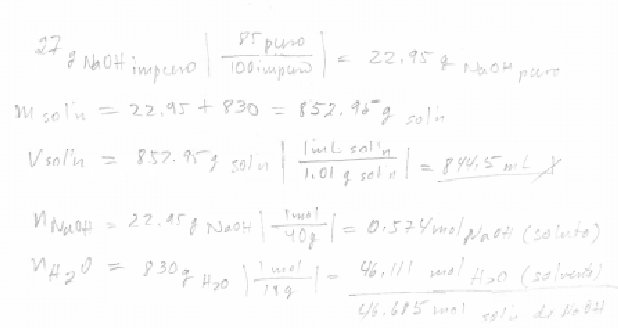 27 g NaOH impuro | 85 puro / 100 impuro | = 22.95 g NaOH puro
m sol'n = 22.95 + 830 = 852.95 g sol'n
V sol'n = 852.95 g sol'n | 1 mL sol'n / 1.01 g sol'n | = 844.5 mL
n NaOH = 22.95 g NaOH | 1 mol / 40 g | = 0.574 mol NaOH (soluto)
n H2O = 830 g H2O | 1 mol / 18 g | = 46.111 mol H2O (solvente)
46.685 mol sol'n de NaOH